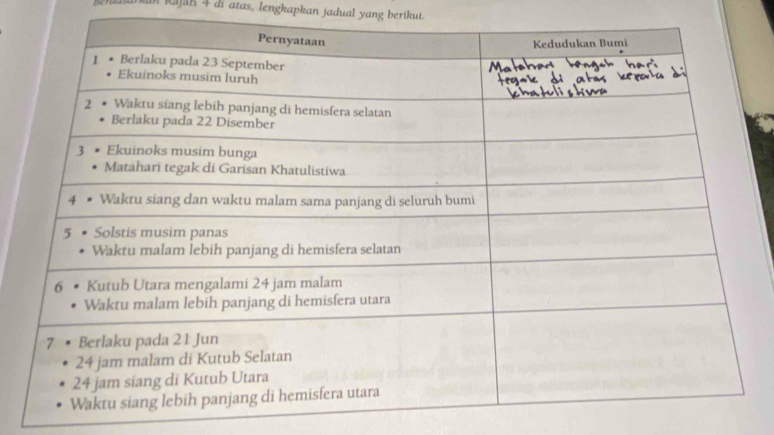 Rajah 4 di atas, lengkapkan jadual yang berikut.
Pernyataan
Kedudukan Bumi
1 • Berlaku pada 23 September
• Ekuinoks musim luruh
Matahari tengah hari
tegak di atas kepala di
khatulistiwa
2 • Waktu siang lebih panjang di hemisfera selatan
• Berlaku pada 22 Disember
3 • Ekuinoks musim bunga
• Matahari tegak di Garisan Khatulistiwa
4 • Waktu siang dan waktu malam sama panjang di seluruh bumi
5 • Solstis musim panas
• Waktu malam lebih panjang di hemisfera selatan
6 • Kutub Utara mengalami 24 jam malam
• Waktu malam lebih panjang di hemisfera utara
7 • Berlaku pada 21 Jun
• 24 jam malam di Kutub Selatan
• 24 jam siang di Kutub Utara
• Waktu siang lebih panjang di hemisfera utara